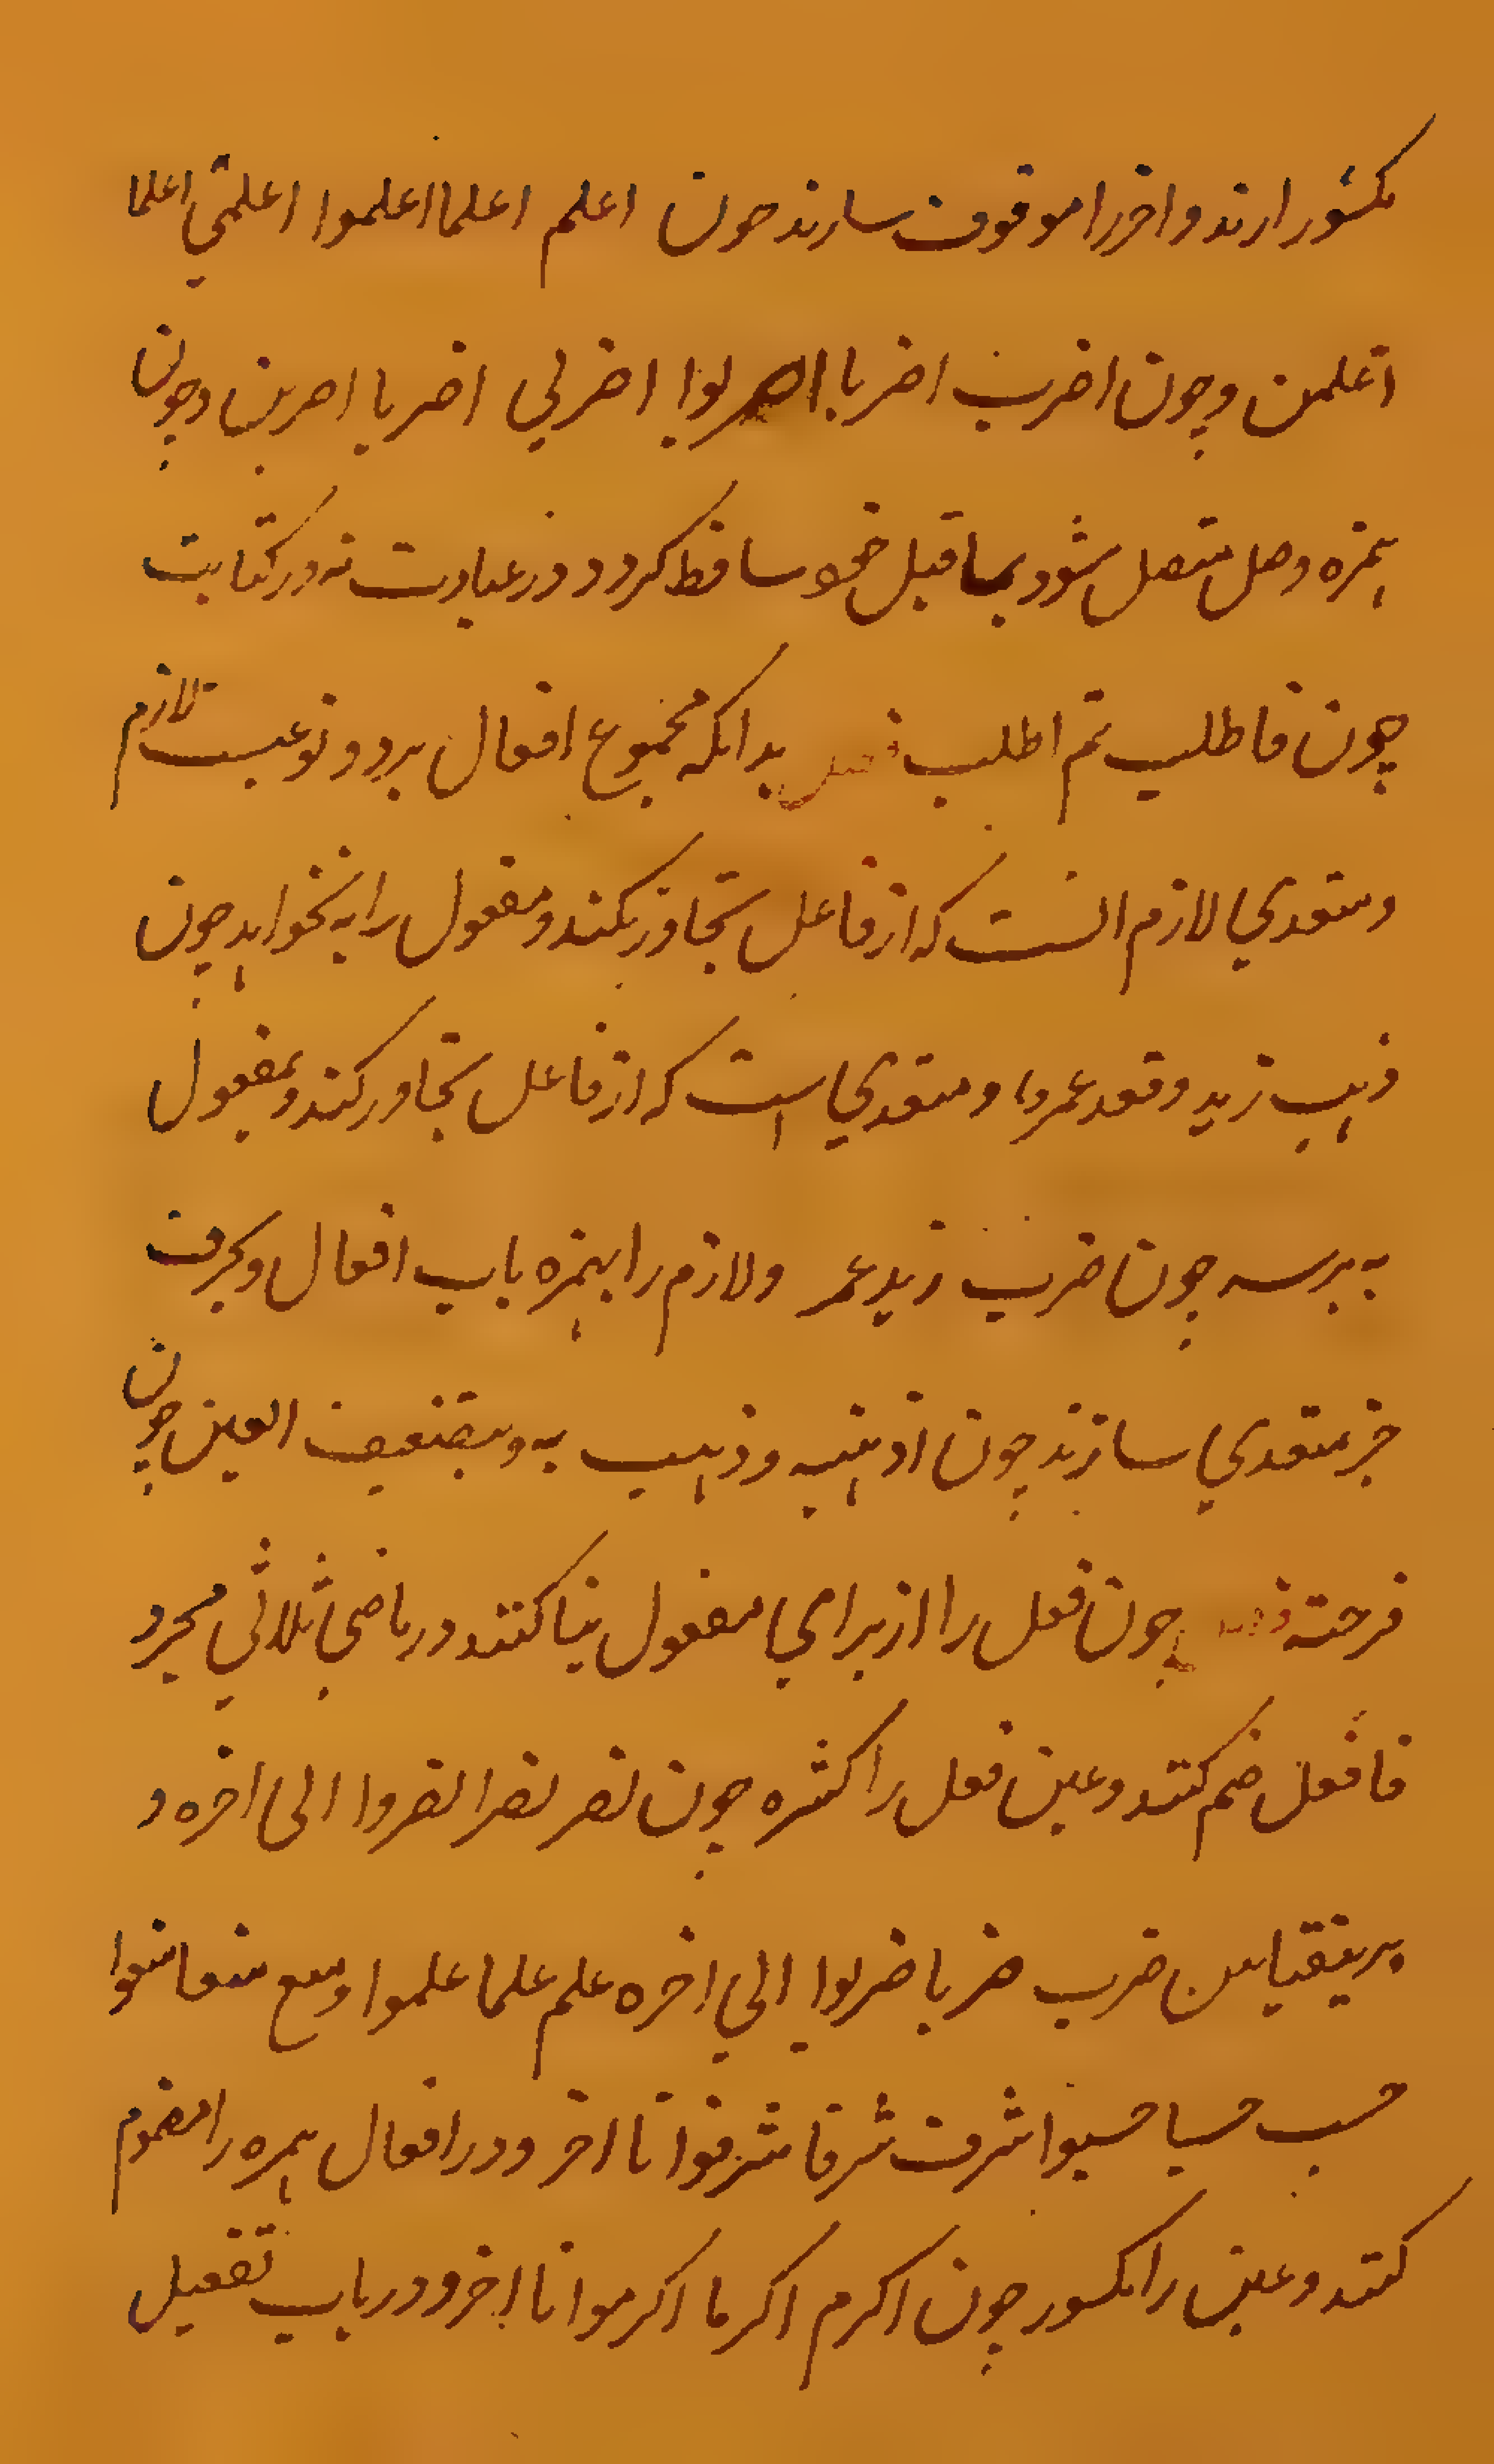 مکسور ارند و اخر را موقوف سارند چون اعلم اعلما اعلموا اعلمی اعلما
اعلمن وچون اضرب اضربا اضربوا اضربی اضربا اضربن وچون
همزه وصل متصل شود بماقبل خود ساقط کردد در عبارت نه در کتابت
چون فاطلب ثم اطلب فصل بدانکه مجموع افعال بر دو نوعیست لازم
ومتعدی لازم انست که از فاعل تجاوز نکند و مفعول را به نخواهد چون
ذهب زید وقعد عمرو ومتعدی است که از فاعل تجاور کند و بمفعول
به برسه چون ضرب زید عمر ولازم را بهمزه باب افعال وبحرف
جر متعدی سازند چون اذهبه وذهب به وبتضعیف العین چون
فرحته فصل چون فعل را از برای مفعول بنا کنند در ماضی ثلاثی مجرد
فا فعل ضم کنند و عین فعل را کثره چون نصر نصرا نصروا الی اخره و
برینقیاس ضرب ضربا ضربوا الی اخره علم علما علموا ومنع منعا منعوا
حسب حسبا حسبوا شرف شرفا شرفوا تا اخر ودر افعال همره را مضموم
کنند وعین را مکسور چون اکرم اکرما اکرموا تا اخر ودر باب تفعیل